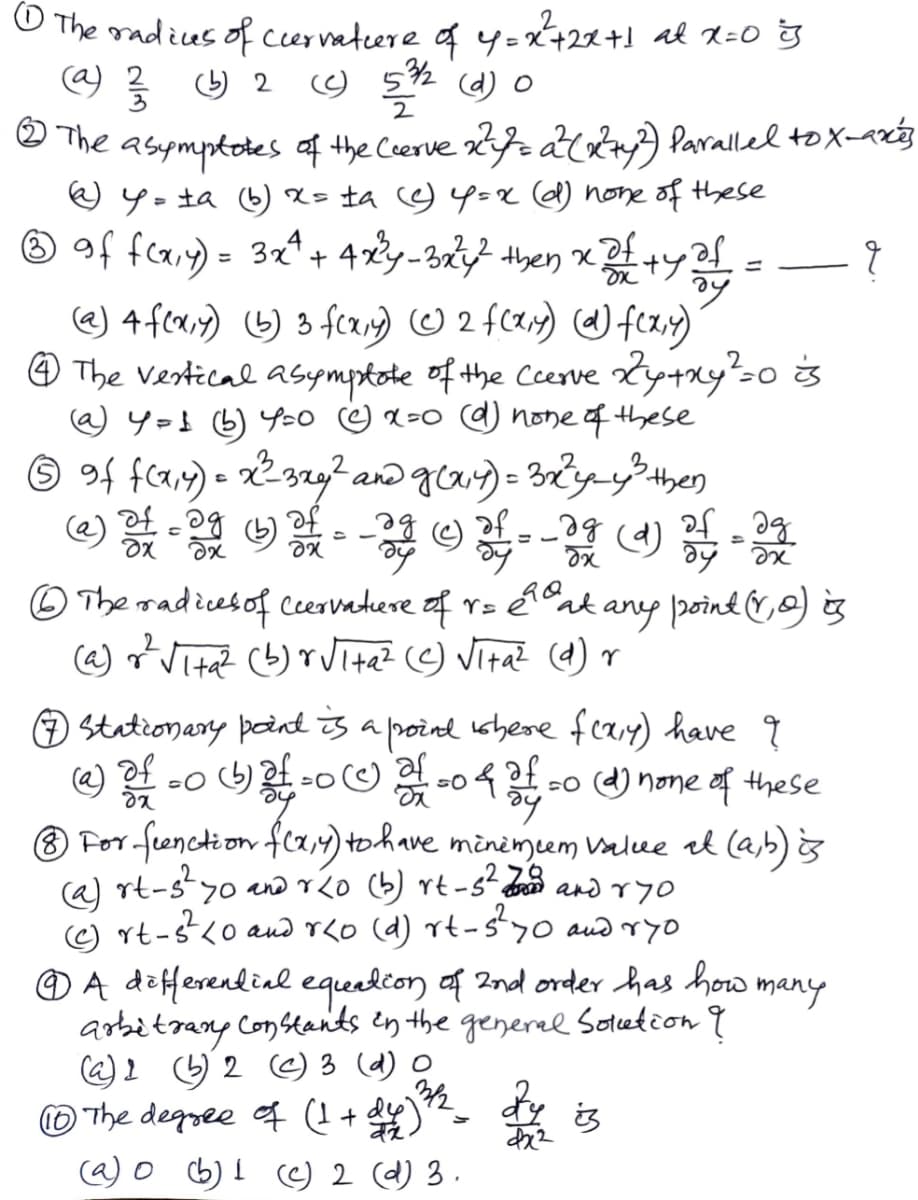 ① The radius of curvature of y=x²+2x+1 at x=0 is
(a) 2/3 (b) 2 (c) 5^3/2/2 (d) 0
② The asymptotes of the curve x²y²=a²(x²+y²) Parallel to X-axis
(a) y=±a (b) x=±a (c) y=x (d) none of these
③ If f(x,y) = 3x⁴+4x³y-3x²y² then x ∂f/∂x + y ∂f/∂y = — ?
(a) 4f(x,y) (b) 3 f(x,y) (c) 2 f(x,y) (d) f(x,y)
④ The vertical asymptote of the curve x²y+xy²=0 is
(a) y=1 (b) y=0 (c) x=0 (d) none of these
⑤ If f(x,y) = x³-3xy² and g(x,y) = 3x²y-y³ then
(a) ∂f/∂x = ∂g/∂x (b) ∂f/∂x = -∂g/∂y (c) ∂f/∂y = -∂g/∂x (d) ∂f/∂y = ∂g/∂x
⑥ The radius of curvature of r= e^aθ at any point (r,θ) is
(a) r²√1+a² (b) r√1+a² (c) √1+a² (d) r
⑦ Stationary point is a point where f(x,y) have ?
(a) ∂f/∂x =0 (b) ∂f/∂y =0 (c) ∂f/∂x =0 & ∂f/∂y =0 (d) none of these
⑧ For function f(x,y) to have minimum value at (a,b) is
(a) rt-s²>0 and r<0 (b) rt-s² and r>0
(c) rt-s²<0 and r<0 (d) rt-s²>0 and r>0
⑨ A differential equation of 2nd order has how many
arbitrary constants in the general Solution ?
(a) 1 (b) 2 (c) 3 (d) 0
⑩ The degree of (1+dy/dx)^3/2 = d²y/dx² is
(a) 0 (b) 1 (c) 2 (d) 3.